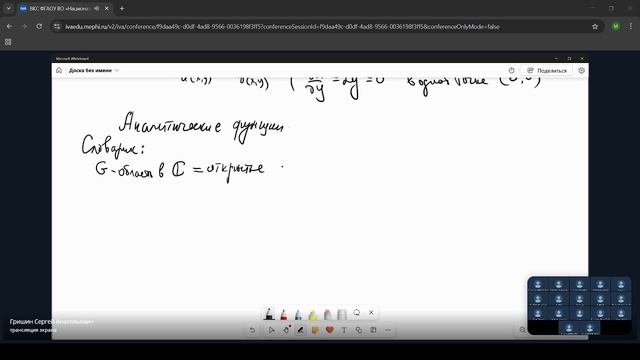 ВКС ФГАОУ ВО «Национ
ivaedu.mephi.ru/v2/iva/conference/f9daa49c-d0df-4ad8-9566-0036198f3ff5?conferenceSessionId=f9daa49c-d0df-4ad8-9566-0036198f3ff5&conferenceOnlyMode=false
Microsoft Whiteboard
Доска без имени
Поделиться
u(x,y) v(x,y) ∂y = 2y = 0 в одной точке
Аналитические функции.
Словарик:
G - область в ℂ = открытые
Гришин Сергей Анатольевич
трансляция экрана